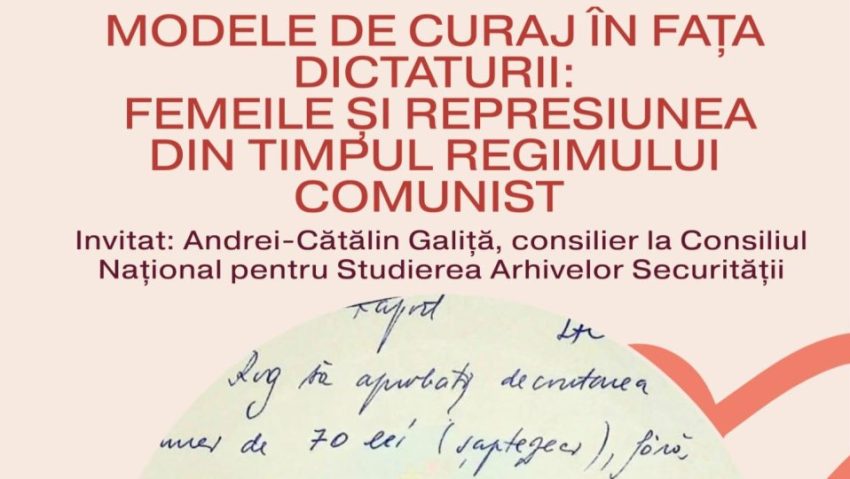 MODELE DE CURAJ ÎN FAȚA
DICTATURII:
FEMEILE ȘI REPRESIUNEA
DIN TIMPUL REGIMULUI
COMUNIST
Invitat: Andrei-Cătălin Galiță, consilier la Consiliul
Național pentru Studierea Arhivelor Securității
Raport
Rog să aprobați decontarea
de 70 lei (șaptezeci), fără